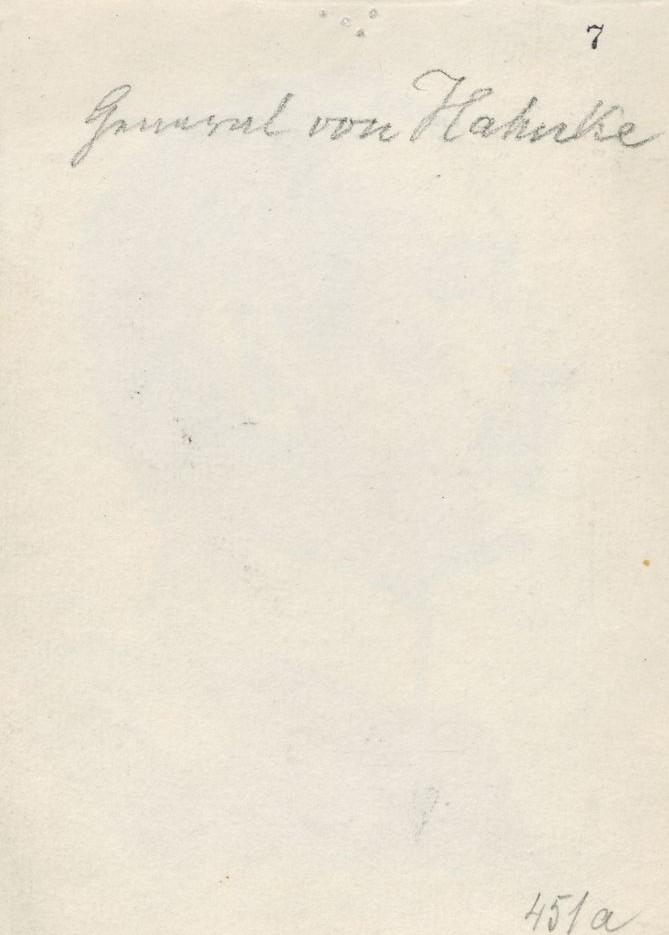 7
General von Hahnke
451a